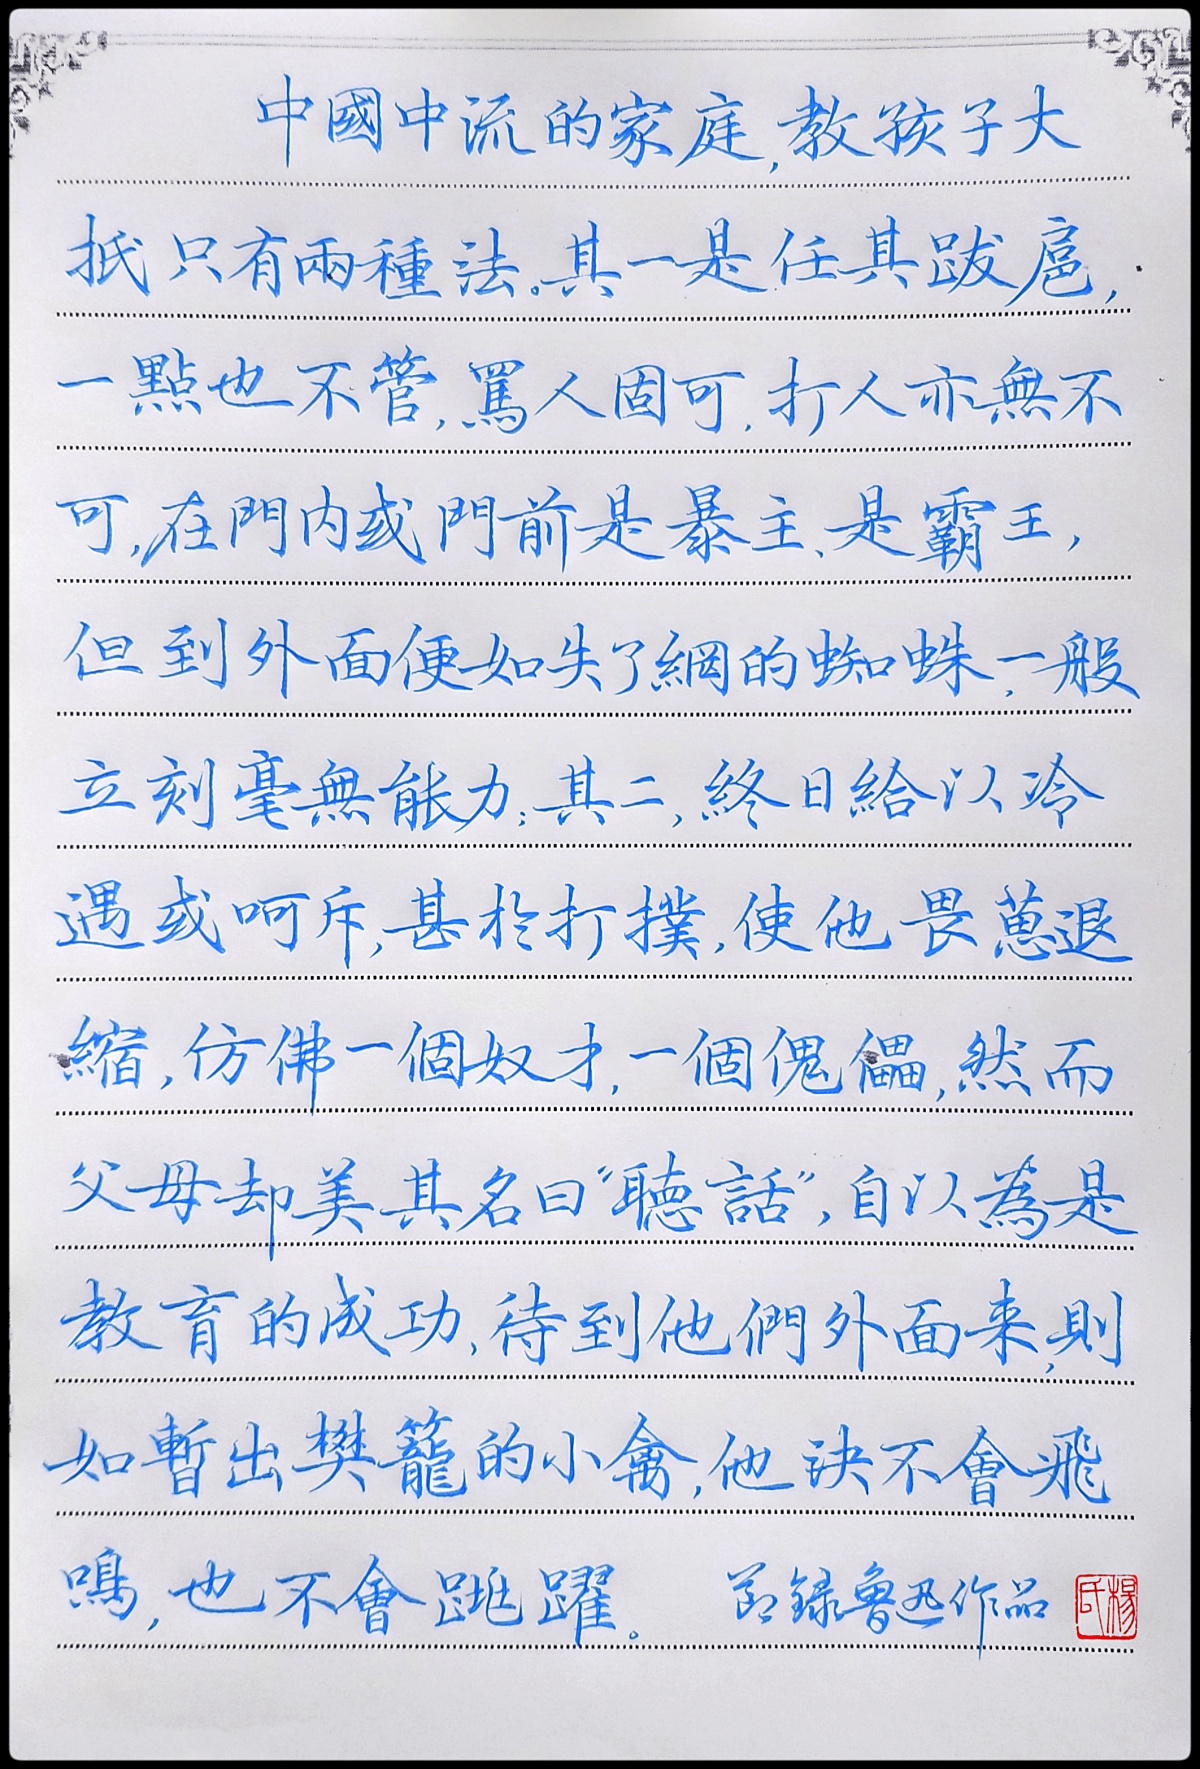 中國中流的家庭,教孩子大
抵只有兩種法。其一是任其跋扈,
一點也不管,罵人固可,打人亦無不
可,在門內或門前是暴主、是霸王,
但到外面便如失了網的蜘蛛,一般
立刻毫無能力;其二,終日給以冷
遇或呵斥,甚於打撲,使他畏葸退
縮,仿佛一個奴才,一個傀儡,然而
父母却美其名曰“聽話”,自以為是
教育的成功,待到他們外面来,則
如暫出樊籠的小禽,他決不會飛
鳴,也不會跳躍。 節録魯迅作品
楊氏